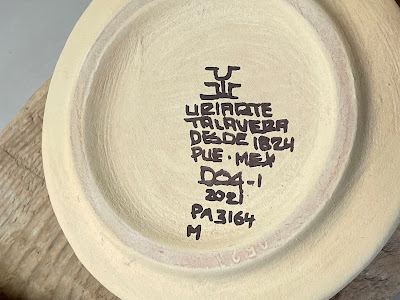 URIARTE
TALAVERA
DESDE 1824
PUE. MEX
DO4-1
2021
PA3164
M